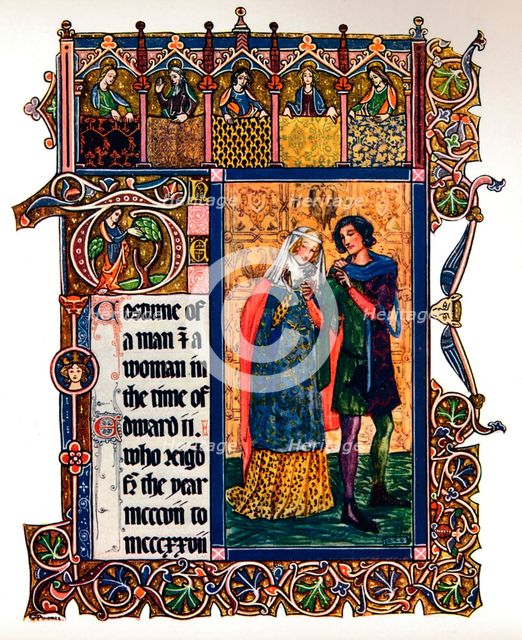 Costume of
a man & a
woman in
the time of
Edward ii.
who reigd
fr the year
mcccvii to
mcccxxvii
Heritage
Heritage
Heritage
Heritage
Heritage
Heritage